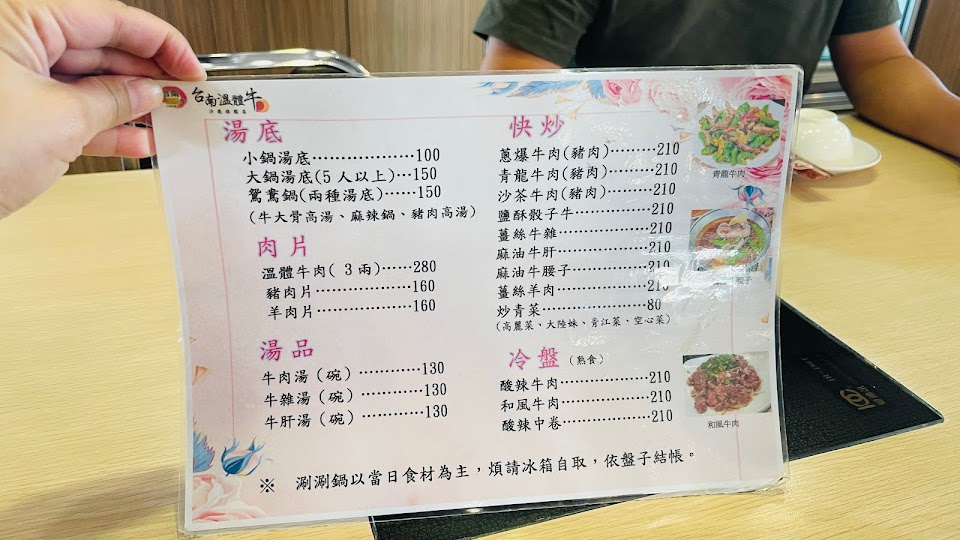 台南溫體牛
湯底
小鍋湯底………………100
大鍋湯底(5人以上)…150
鴛鴦鍋(兩種湯底)……150
(牛大骨高湯、麻辣鍋、豬肉高湯)
肉片
溫體牛肉(3兩)……280
豬肉片………………160
羊肉片………………160
湯品
牛肉湯(碗)…………130
牛雜湯(碗)…………130
牛肝湯(碗)…………130
快炒
蔥爆牛肉(豬肉)………210
青龍牛肉(豬肉)………210
沙茶牛肉(豬肉)………210
鹽酥骰子牛……………210
薑絲牛雜………………210
麻油牛肝………………210
麻油牛腰子……………210
薑絲羊肉………………210
炒青菜…………………80
(高麗菜、大陸妹、青江菜、空心菜)
冷盤(熟食)
酸辣牛肉………………210
和風牛肉………………210
酸辣中卷………………210
青龍牛肉
腰子
和風牛肉
※ 涮涮鍋以當日食材為主,煩請冰箱自取,依盤子結帳。